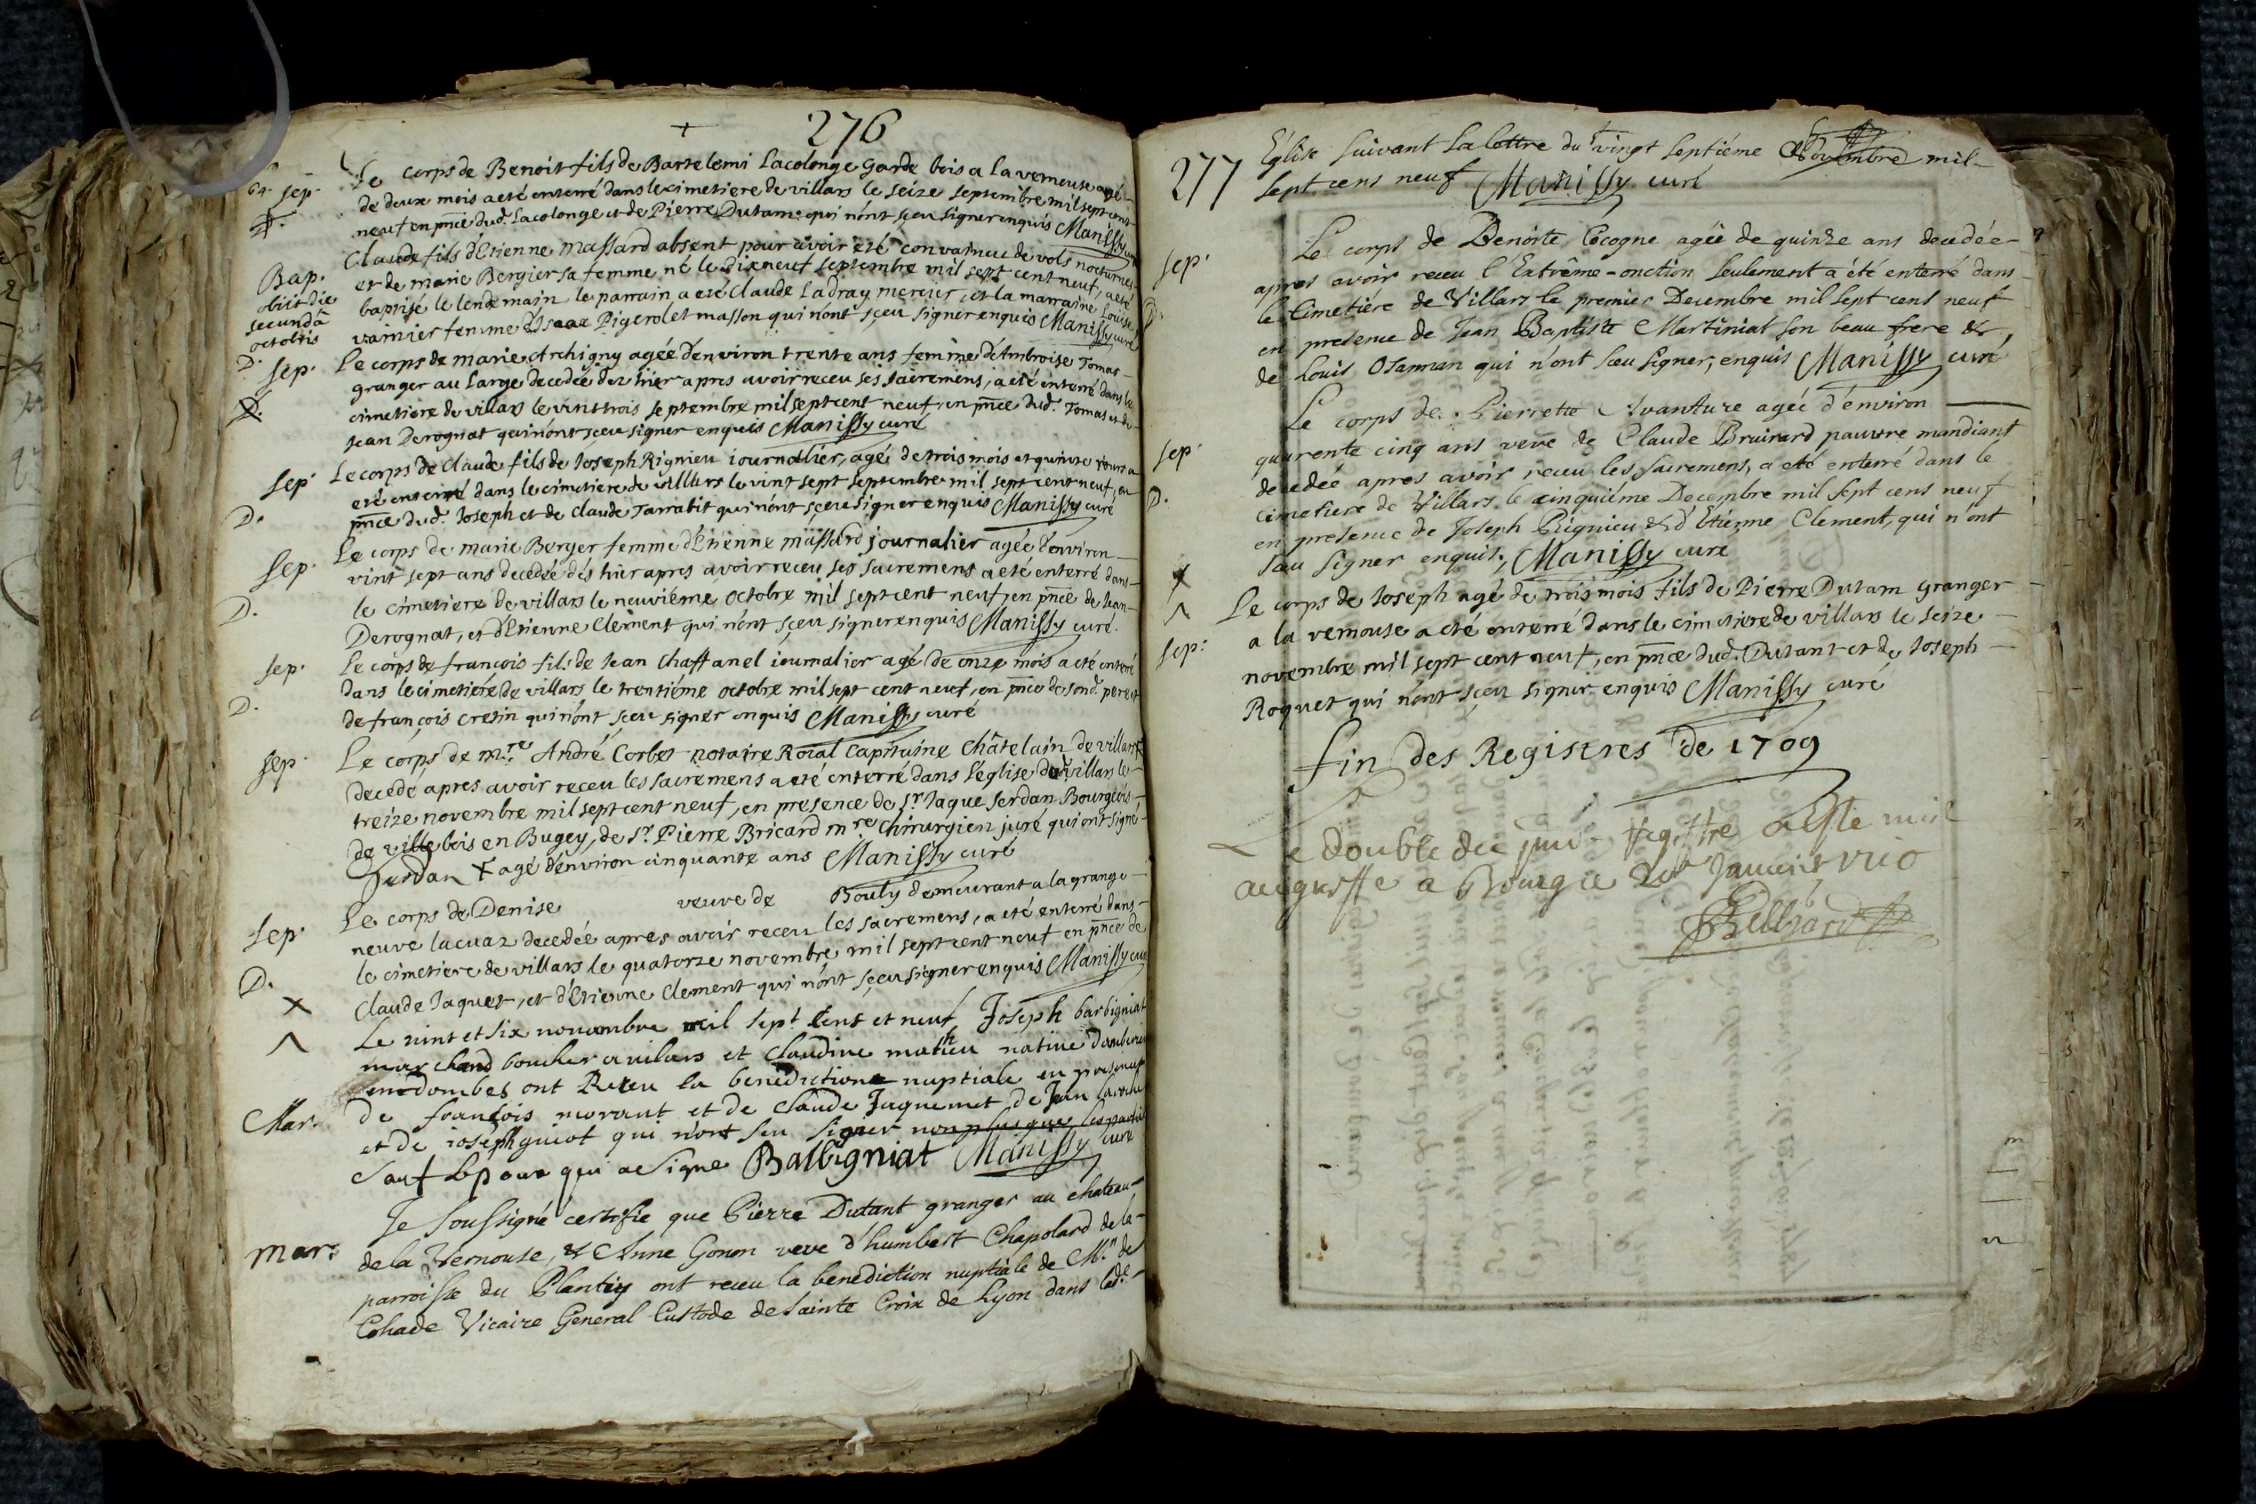 276
+
64. sep. Le corps de Benoit fils de Bartelemi Lacolonge garde bois a la vernouse agé
D. de deux mois a eté enterré dans le cimetiere de villars le seize septembre mil sept cent
neuf en pnce dud. Lacolonge et de Pierre Dutam qui n'ont sçeu signer enquis Manissy curé
Bap. Claude fils d'Etienne massard absent pour avoir eté convaincu de vols nocturnes
obiit die et de marie Bergier sa femme né le dixneuf septembre mil sept cent neuf, a eté
secundâ baptisé le lendemain le parrain a eté Claude Ladray mercier, et la marraine Louise
octobris vainier femme d'Isaac Pigerolet masson qui n'ont sçeu signer enquis Manissy curé
D.
sep. Le corps de marie Archigny agée d'environ trente ans femme d'Ambroise Tomas
granger au Large decedée dez hier apres avoir receu ses sacremens, a eté enterré dans le
D. cimetiere de villars le vint trois septembre mil sept cent neuf, en pnce dud. Tomas et de
Jean Derognat qui n'ont sçeu signer enquis Manissy curé
sep. Le corps de Claude fils de Joseph Rignieu iournalier, agé de trois mois et quinze iours a
eté enterré dans le cimetiere de villars le vint sept septembre mil sept cent neuf, en
D. pnce dud. Joseph et de Claude Tarrabit qui n'ont sçeu signer enquis Manissy curé
Le corps de marie Berger femme d'Etienne massard journalier agée d'environ
sep. vint sept ans decedée dés hier apres avoir receu ses sacremens a eté enterré dans
D. le cimetiere de villars le neuvieme octobre mil sept cent neuf, en pnce de Jean
Derognat, et d'Etienne Clement qui n'ont sçeu signer enquis Manissy curé.
sep. Le corps de françois fils de Jean Chaffanel iournalier agé de onze mois a eté enterré
dans le cimetiere de villars le trentiéme octobre mil sept cent neuf, en pnce de sond. pere et
D. de françois cretin qui n'ont sçeu signer enquis Manissy curé
sep. Le corps de mre André Corbet notaire Roial Capitaine Châtelain de villars X
decedé apres avoir receu les sacremens a eté enterré dans l'église de villars le
treize novembre mil sept cent neuf, en presence de sr Jaque Jerdan Bourgeois
de ville bois en Bugey, de sr. Pierre Bricard mre chirurgien juré qui ont signé
Jurdan X agé d'environ cinquante ans Manissy curé
sep. Le corps de Denise veuve de Bouly demeurant a la grange
neuve lacuaz decedée apres avoir receu les sacremens, a eté enterré dans
D. le cimetiere de villars le quatorze novembre mil sept cent neuf en pnce de
X Claude Jaquet, et d'Etienne Clement qui n'ont sçeu signer enquis Manissy curé
^ Le vint et six novembre mil sept cens et neuf Joseph barbigniat
marchand boucher a vilars et Claudine mathieu native d'amberieu
en dombes ont Receu la benediction nuptiale en presence
Mar. de françois morant et de Claude Jaquemet de Jean
et de ioseph guiot qui n'ont seu signer non plus que les parties
sauf lepoux qui a signe Balbigniat Manissy curé
Je soussigné certifie que Pierre Dutant granger au chateau
mars de la Vernouse, & Anne Gonon veve d'humbert Chapolard de la
parroisse du Plantey ont receu la benediction nuptiale de Mr. de
Cohade Vicaire General Custode de Sainte Croix de Lyon dans lade
277
Eglise suivant sa lettre du vingt septiéme Novembre mil
sept cens neuf Manissy curé
sep. Le corps de Benoite Cocogne agée de quinze ans decedée
apres avoir receu l'Extrême-onction seulement a été enterré dans
D. le Cimetiére de Villars le premier Decembre mil sept cens neuf
en presence de Jean Baptiste Martiniat son beau frere &
de Louis Osanman qui n'ont sceu signer, enquis Manissy curé
Le corps de Pierrette Avanture agée d'environ
sep. quarente cinq ans veve de Claude Bruirard pauvre mandiant
decedée apres avoir receu les sacremens, a eté enterré dans le
D. cimetiere de Villars le cinquiéme Decembre mil sept cens neuf
en presence de Joseph Rignieu & d'Etienne Clement, qui n'ont
X sau signer enquis. Manissy curé
^ Le corps de Joseph agé de trois mois fils de Pierre Dutam granger
sep. a la vernouse a eté enterré dans le cimetiere de villars le seize
novembre mil sept cent neuf, en pnce dud. Dutant et de Joseph
Roquet qui n'ont sçeu signer enquis Manissy curé
fin des Registres de 1709
Le double du Registre a esté mis
au greffe a Bourg ce Janvier